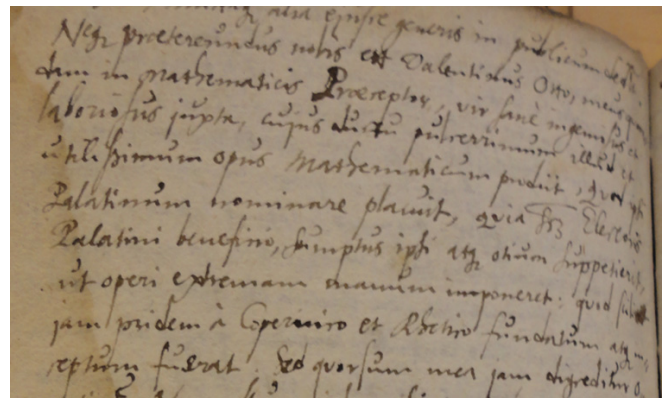 alia ejusdem generis in publicum
Neq; praetereundus nobis est Valentinus Otto, meus
dam in Mathematicis Praeceptor, vir sanè ingeniosus et
laboriosus juxta, cujus ductu pulcerrimum illud et
utilissimum opus Mathematicum prodiit, quod ipsi
Palatinum nominare placuit, quia Electoris
Palatini beneficio, sumptus ipsi atq; otium suppetierit,
ut operi extremam manum imponeret: quod
jam pridem à Copernico et Rhetico fundatum atq;
ceptum fuerat. Sed quorsum mea jam digreditur